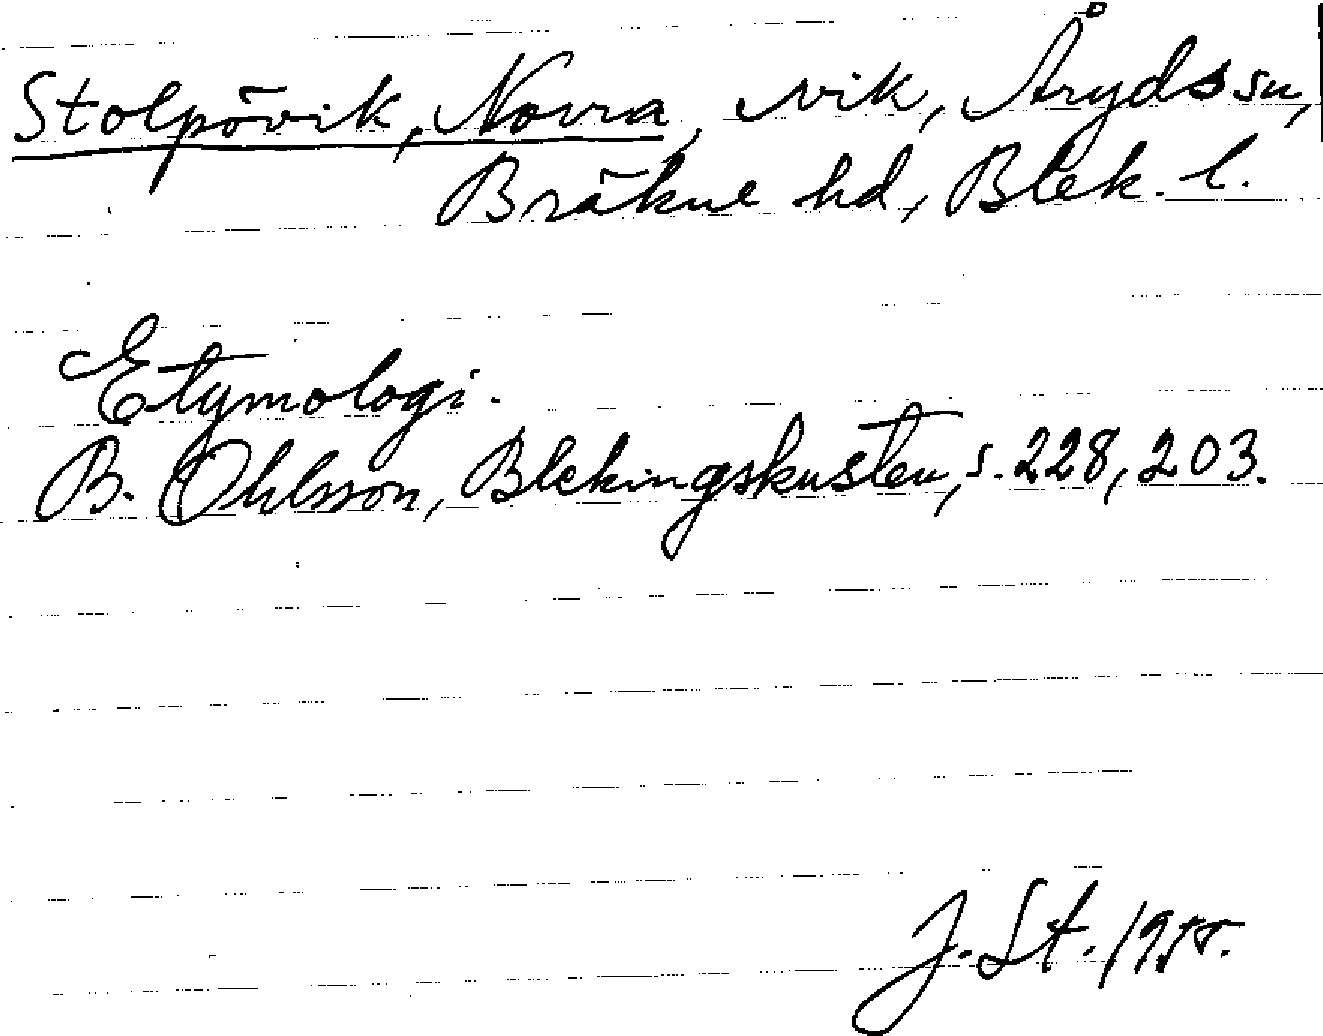 Stolpövik, Norra, vik, Åryds sn,
Bräkne hd, Blek. l.
Etymologi.
B. Ohlsson, Blekingskusten, s. 228, 203.
J. St. 1955.